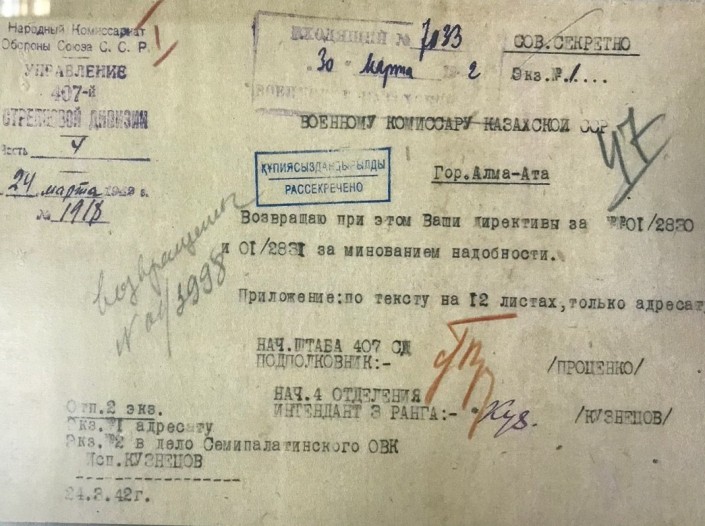 Народный Комиссариат
Обороны Союза С. С. Р.
УПРАВЛЕНИЕ
407-й
СТРЕЛКОВОЙ ДИВИЗИИ
Часть 4
24 марта 1942 г.
№ 1918
ВХОДЯЩИЙ № 7033
30 марта 2
СОВ.СЕКРЕТНО
Экз.№.1....
ВОЕННОМУ КОМИССАРУ КАЗАХСКОЙ ССР
47
ҚҰПИЯСЫЗДАНДЫРЫЛДЫ
РАССЕКРЕЧЕНО
Гор.Алма-Ата
Возвращаю при этом Ваши директивы за №№01/2830
и 01/2831 за минованием надобности.
Приложение:по тексту на 12 листах,только адресату
НАЧ.ШТАБА 407 СД
ПОДПОЛКОВНИК:- /ПРОЦЕНКО/
НАЧ.4 ОТДЕЛЕНИЯ
ИНТЕНДАНТ 3 РАНГА:- Куз. /КУЗНЕЦОВ/
Отп.2 экз.
Экз.№1 адресату
Экз.№2 в дело Семипалатинского ОВК
Исп.КУЗНЕЦОВ
24.3.42г.